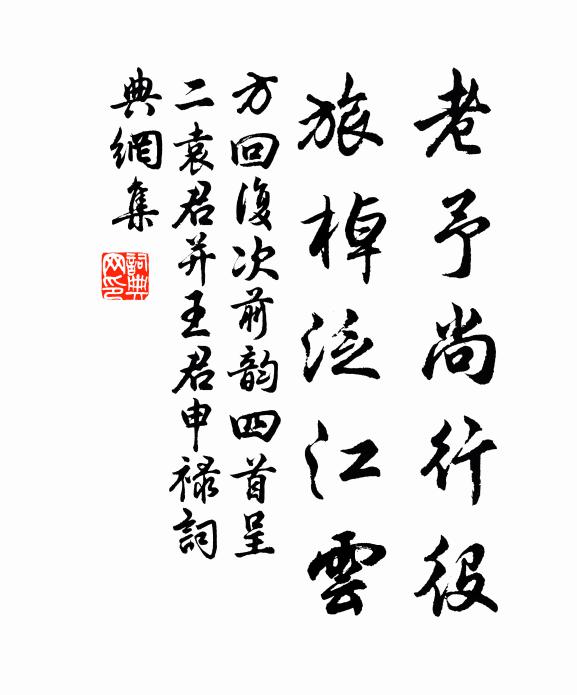 老予尚行役
旅棹泛江雲
方回復次前韵四首呈
二袁君并王君申禄詞
典網集
詞典网印